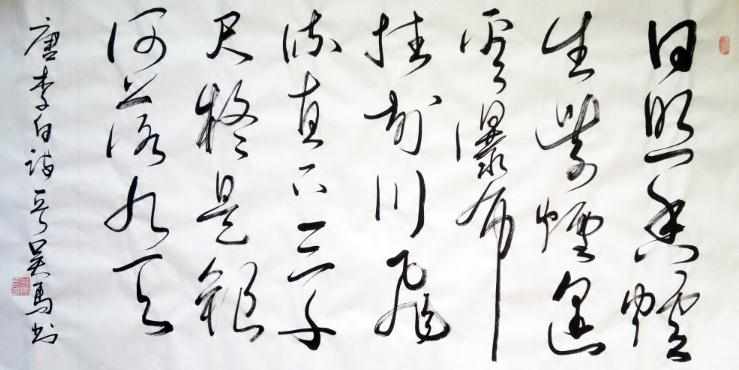 日照香爐
生紫煙遥
看瀑布
挂前川飛
流直下三千
尺疑是銀
河落九天
唐李白诗吴馬书